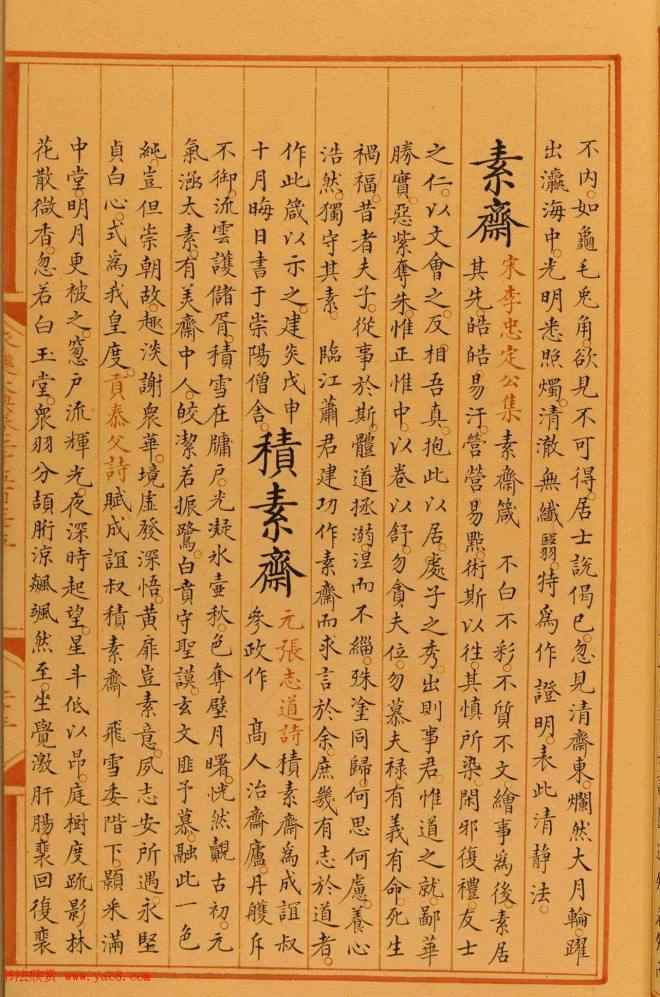 不内如龜毛兎角欲見不可得居士說偈已忽見清齋東爛然大月輪躍
出瀛海中光明悉照燭清澈無纖翳特為作證明表此清静法
素齋 宋李忠定公集 素齋箴 不白不彩不質不文繪事為後素居
其先皓皓易汙營營易點術斯以往其慎所染閑邪復禮友士
之仁以文會之反相吾真抱此以居處子之秀出則事君惟道之就鄙華
勝實惡紫奪朱惟正惟中以卷以舒勿貪夫位勿慕夫禄有義有命死生
禍福昔者夫子從事於斯體道拯溺涅而不緇殊塗同歸何思何慮養心
浩然獨守其素 臨江蕭君建功作素齋而求言於余庶幾有志於道者
作此箴以示之建炎戊申
十月晦日書于崇陽僧舍 積素齋 元張志道詩 積素齋為成誼叔
參政作 高人治齋廬丹雘斥
不御流雲護儲胥積雪在牖戶光凝氷壺秋色奪壁月曙恍然覿古初元
氣涵太素有美齋中人皎潔若振鷺白賁守聖謨玄文匪予慕融此一色
純豈但崇朝故趣淡謝衆華境虚發深悟黄扉豈素意夙志安所遇永堅
貞白心式為我皇度 貢泰父詩 賦成誼叔積素齋 飛雪委階下顥釆滿
中堂明月更被之窻戶流輝光夜深時起望星斗低以昂庭樹度疏影林
花散微香忽若白玉堂衆羽分頡䀪涼飈颯然至坐覺激肝腸裴回復裴
书法欣赏 www.yac8.com